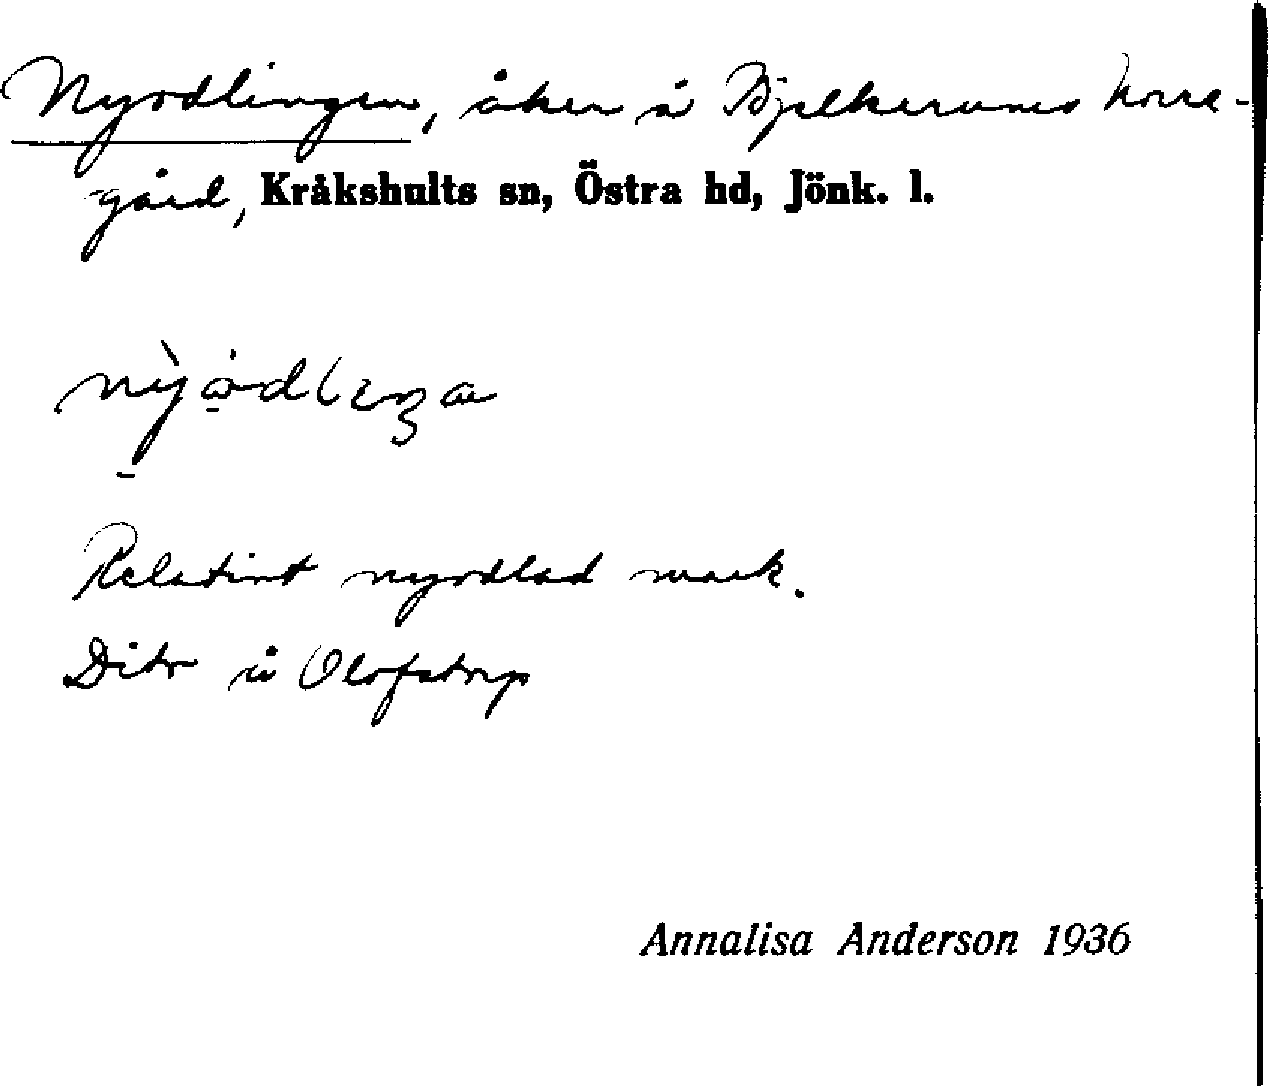 Nyodlingen, åker å Bjelkerums Norre-
-gård, Kråkshults sn, Östra hd, Jönk. l.
Relativt nyodlad mark.
Dito å Olofstorp
Annalisa Anderson 1936